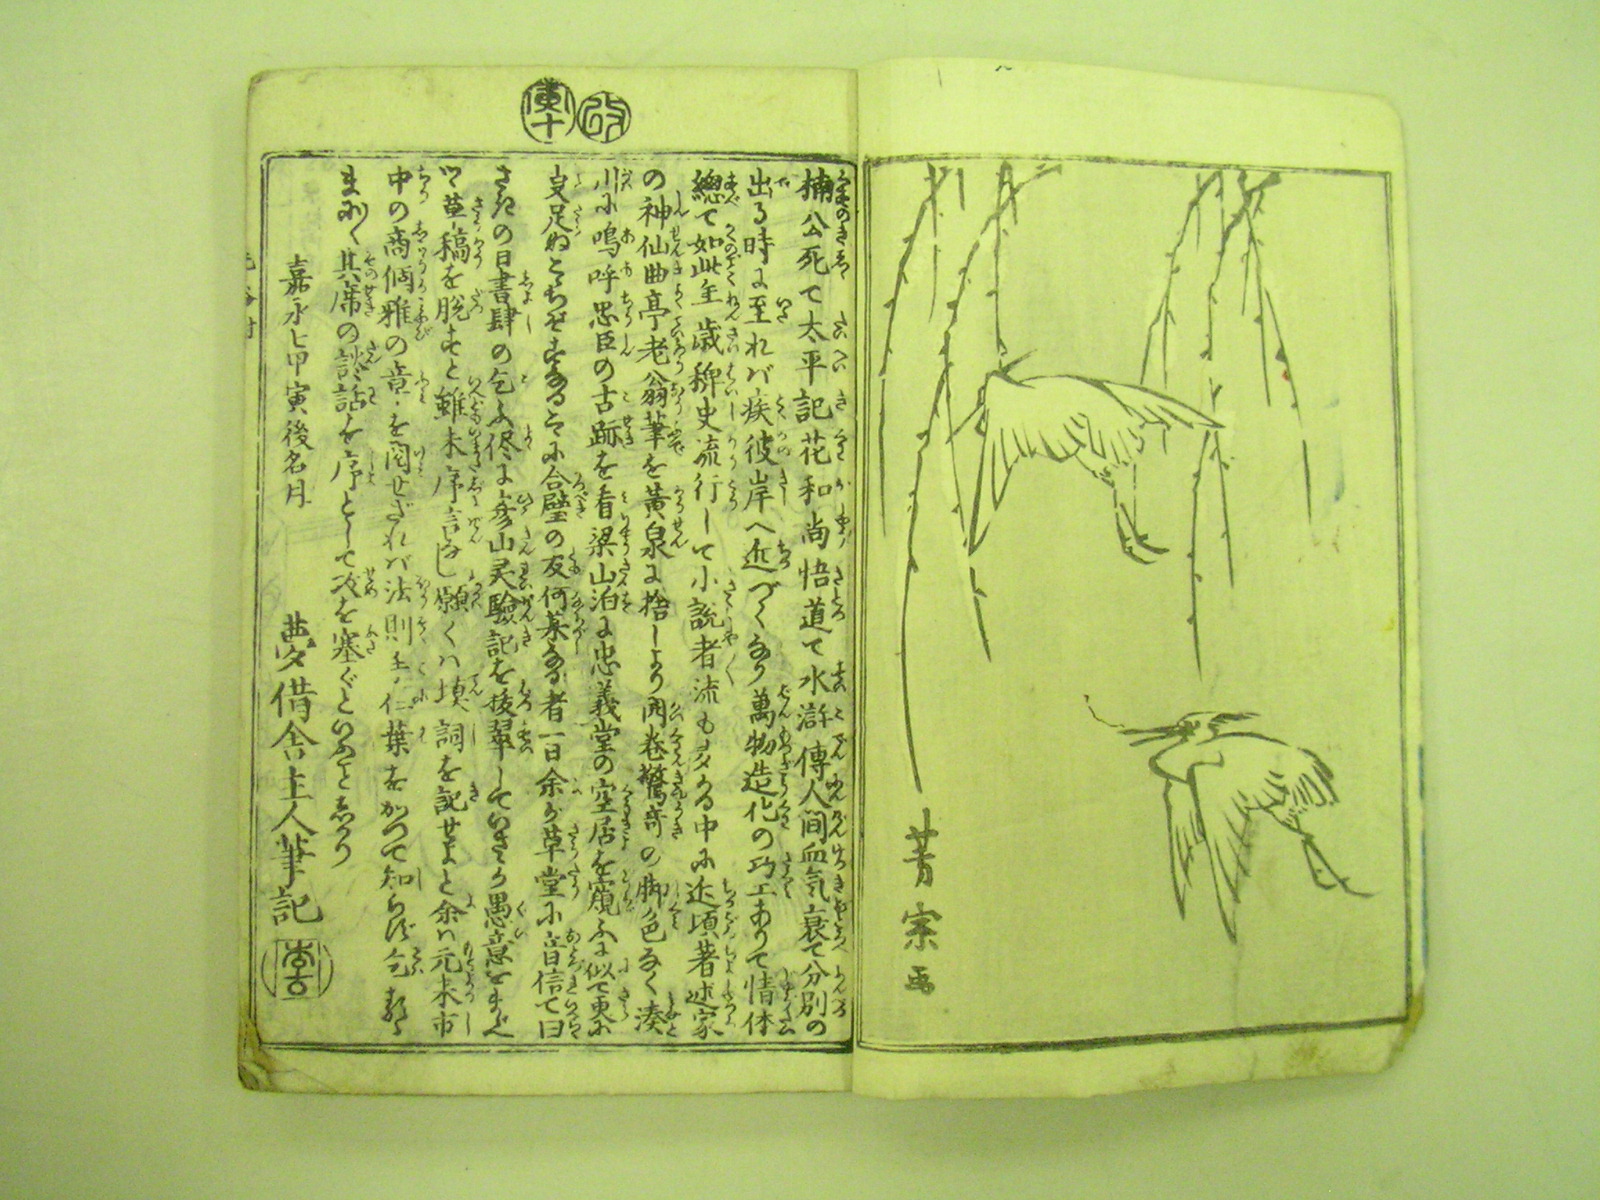 芳宗画
改
楠公死て太平記花和尚悟道て水滸傳人間血気衰て分別の
出る時に至れバ疾彼岸へ近づくなり萬物造化の巧工ありて情体
總て如此年歳稗史流行して小説者流も多かる中に近頃著述家
の神仙曲亭老翁筆を黄泉に捨しより開巻驚奇の脚色なく湊
川に嗚呼忠臣の古跡を看梁山泊に忠義堂の空居を窺ふに似て更に
足ぬこゝちぞすなる に合璧の友何某なる者一日余が草堂に音信て曰
さきの日書肆の乞ふ侭に彦山灵驗記を抜翠していさゝか愚意をまじへ
草稿を脱すと雖未序言なし願くハ填詞を記せよと余ハ元来市
中の商個雅の章を閲せざれバ法則 葉をかつて知らず
其席の談話を序として攻を塞ぐといふことしかり
嘉永七甲寅後名月
夢借舎主人筆記